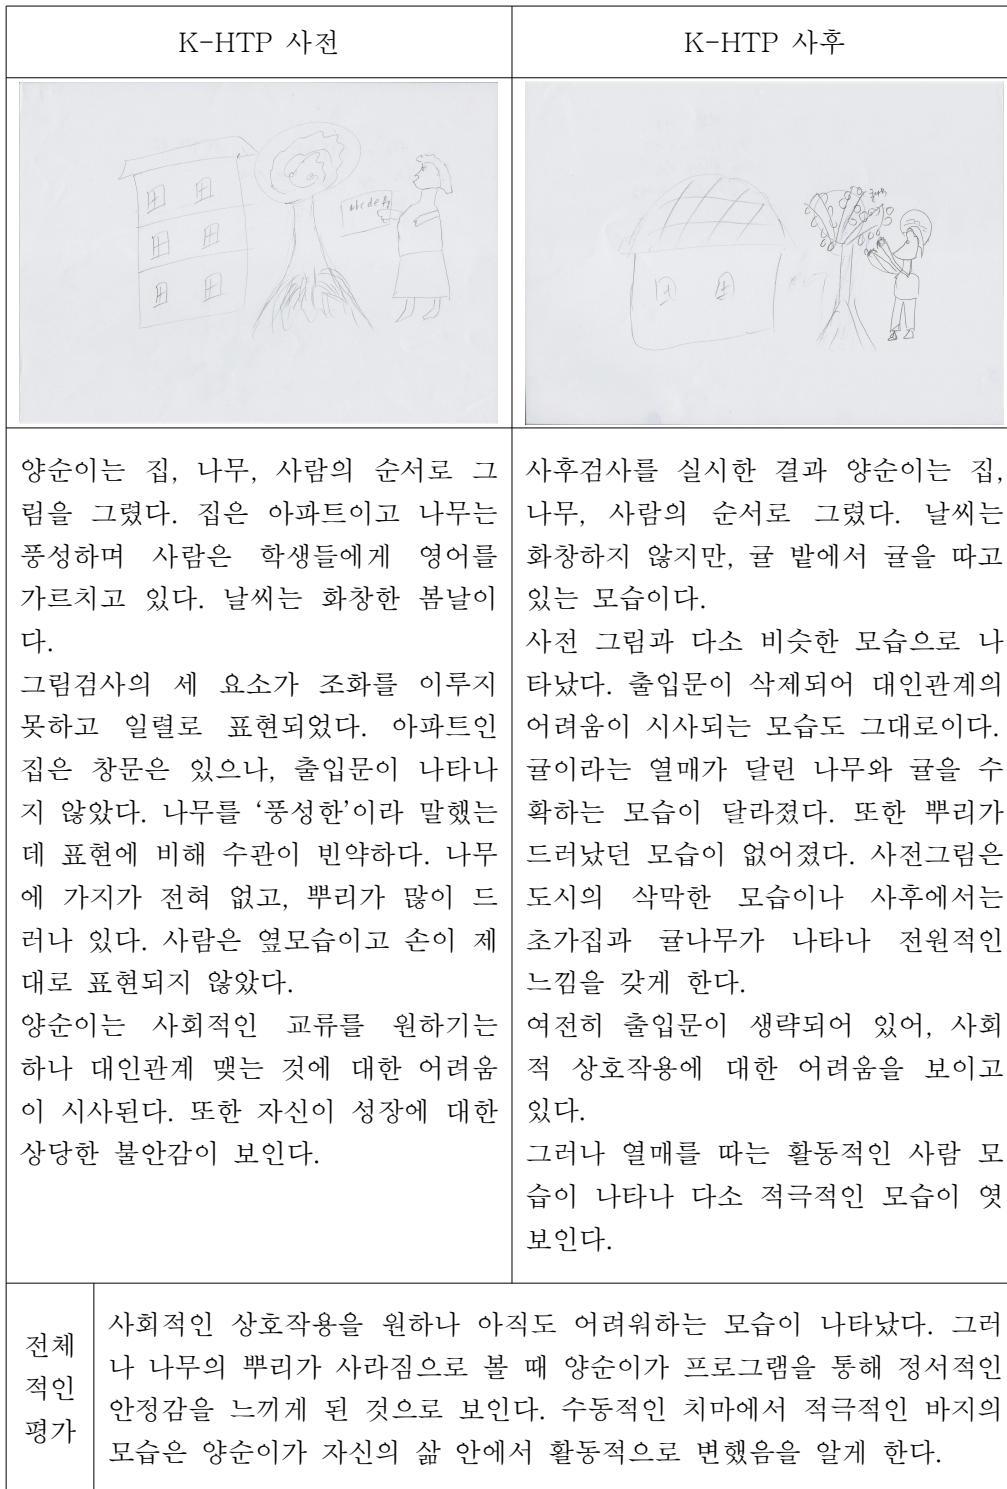 K-HTP 사전
K-HTP 사후
abcdefg
귤나무
양순이는 집, 나무, 사람의 순서로 그
림을 그렸다. 집은 아파트이고 나무는
풍성하며 사람은 학생들에게 영어를
가르치고 있다. 날씨는 화창한 봄날이
다.
그림검사의 세 요소가 조화를 이루지
못하고 일렬로 표현되었다. 아파트인
집은 창문은 있으나, 출입문이 나타나
지 않았다. 나무를 ‘풍성한’이라 말했는
데 표현에 비해 수관이 빈약하다. 나무
에 가지가 전혀 없고, 뿌리가 많이 드
러나 있다. 사람은 옆모습이고 손이 제
대로 표현되지 않았다.
양순이는 사회적인 교류를 원하기는
하나 대인관계 맺는 것에 대한 어려움
이 시사된다. 또한 자신이 성장에 대한
상당한 불안감이 보인다.
사후검사를 실시한 결과 양순이는 집,
나무, 사람의 순서로 그렸다. 날씨는
화창하지 않지만, 귤 밭에서 귤을 따고
있는 모습이다.
사전 그림과 다소 비슷한 모습으로 나
타났다. 출입문이 삭제되어 대인관계의
어려움이 시사되는 모습도 그대로이다.
귤이라는 열매가 달린 나무와 귤을 수
확하는 모습이 달라졌다. 또한 뿌리가
드러났던 모습이 없어졌다. 사전그림은
도시의 삭막한 모습이나 사후에서는
초가집과 귤나무가 나타나 전원적인
느낌을 갖게 한다.
여전히 출입문이 생략되어 있어, 사회
적 상호작용에 대한 어려움을 보이고
있다.
그러나 열매를 따는 활동적인 사람 모
습이 나타나 다소 적극적인 모습이 엿
보인다.
전체
적인
평가
사회적인 상호작용을 원하나 아직도 어려워하는 모습이 나타났다. 그러
나 나무의 뿌리가 사라짐으로 볼 때 양순이가 프로그램을 통해 정서적인
안정감을 느끼게 된 것으로 보인다. 수동적인 치마에서 적극적인 바지의
모습은 양순이가 자신의 삶 안에서 활동적으로 변했음을 알게 한다.